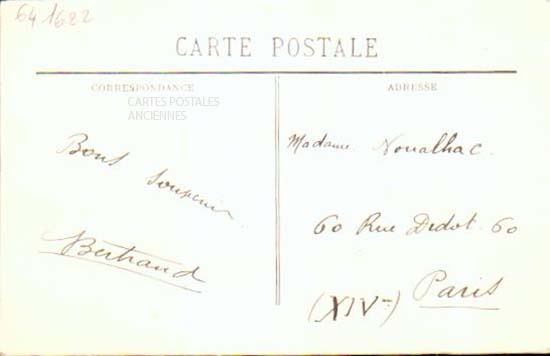 641622
CARTE POSTALE
CORRESPONDANCE
CARTES POSTALES
ANCIENNES
Bons souvenir
Bertrand
ADRESSE
Madame Noualhac.
60 Rue Didot. 60
Paris
(XIVe)